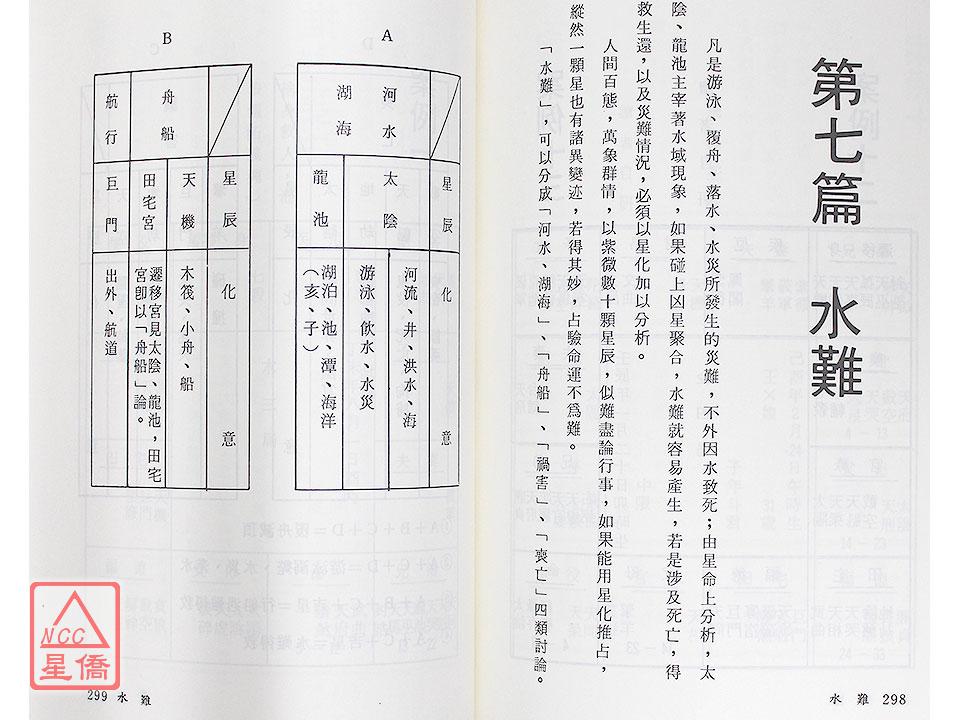 第七篇 水難
凡是游泳、覆舟、落水、水災所發生的災難，不外因水致死；由星命上分析，太
陰、龍池主宰著水域現象，如果碰上凶星聚合，水難就容易產生，若是涉及死亡，得
救生還，以及災難情況，必須以星化加以分析。
人間百態，萬象群情，以紫微數十顆星辰，似難盡論行事，如果能用星化推占，
縱然一顆星也有諸異變迹，若得其妙，占驗命運不爲難。
「水難」，可以分成「河水、湖海」、「舟船」、「禍害」、「喪亡」四類討論。
水難 298
A
星辰
化意
河水
湖海
太陰
河流、井、洪水、海
游泳、飲水、水災
龍池
湖泊、池、潭、海洋
（亥、子）
B
星辰
化意
舟船
天機
木筏、小舟、船
田宅宮
遷移宮見太陰、龍池，田宅
宮卽以「舟船」論。
航行
巨門
出外、航道
299 水難
NCC
星僑